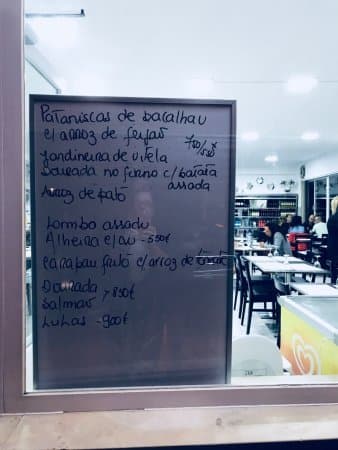 Pataniscas de bacalhau
c/arroz de feijão 7,50/5,50€
Jardineira de vitela
Dourada no forno c/batata
assada
Arroz de pato
Lombo assado
Alheira c/ovo - 550€
Carapau frito c/arroz de tomate
Dourada
Salmão > 850€
Lulas - 900€